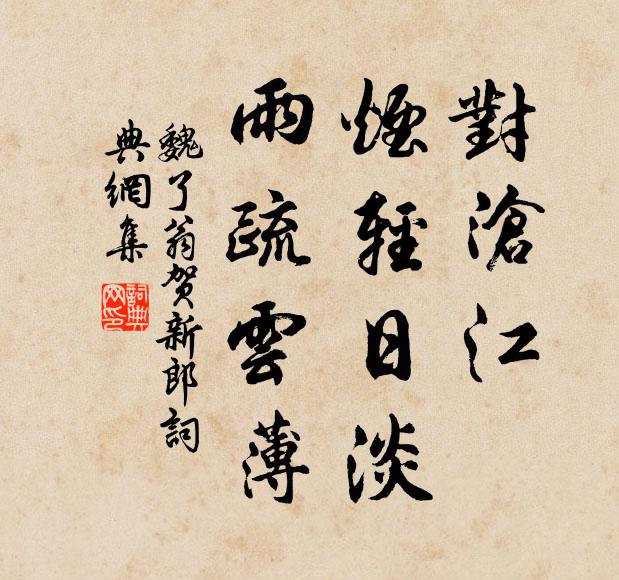 對滄江
煙輕日淡
雨疏雲薄
魏了翁賀新郎詞
典網集
詞典網印